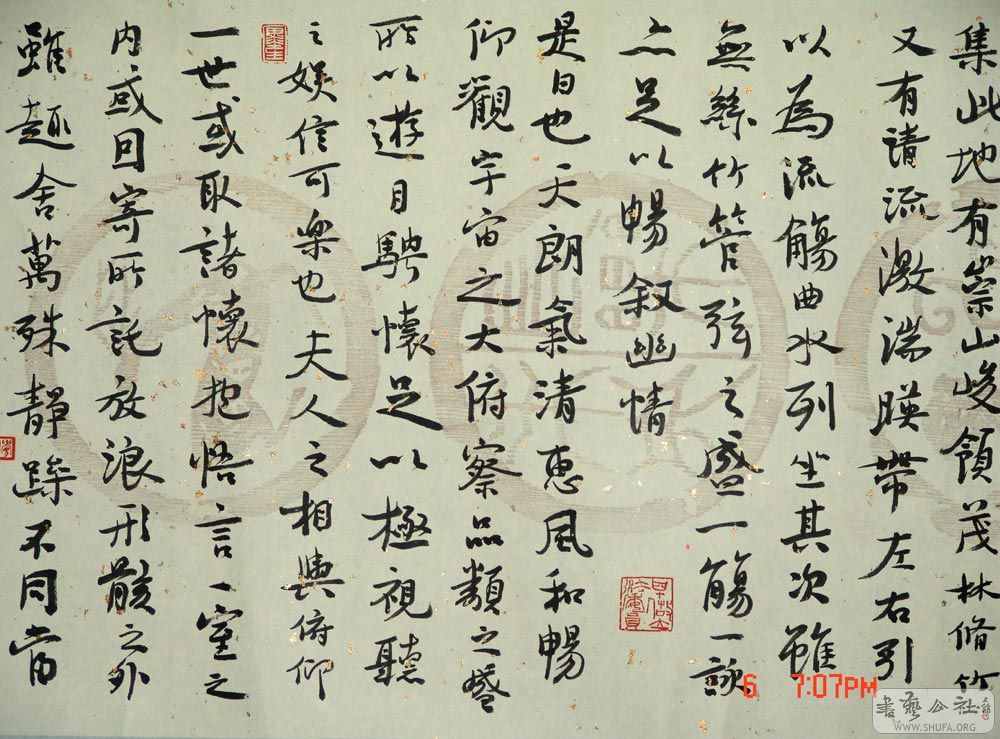 集此地有崇山峻領茂林脩竹
又有清流激湍暎帶左右引
以為流觴曲水列坐其次雖
無絲竹管弦之盛一觴一詠
亦足以暢叙幽情
是日也天朗氣清惠風和暢
仰觀宇宙之大俯察品類之盛
所以遊目騁懷足以極視聽
之娛信可樂也夫人之相與俯仰
一世或取諸懷抱悟言一室之
内或因寄所託放浪形骸之外
雖趣舍萬殊靜躁不同當
6 7:07PM
書藝公社
WWW.SHUFA.ORG